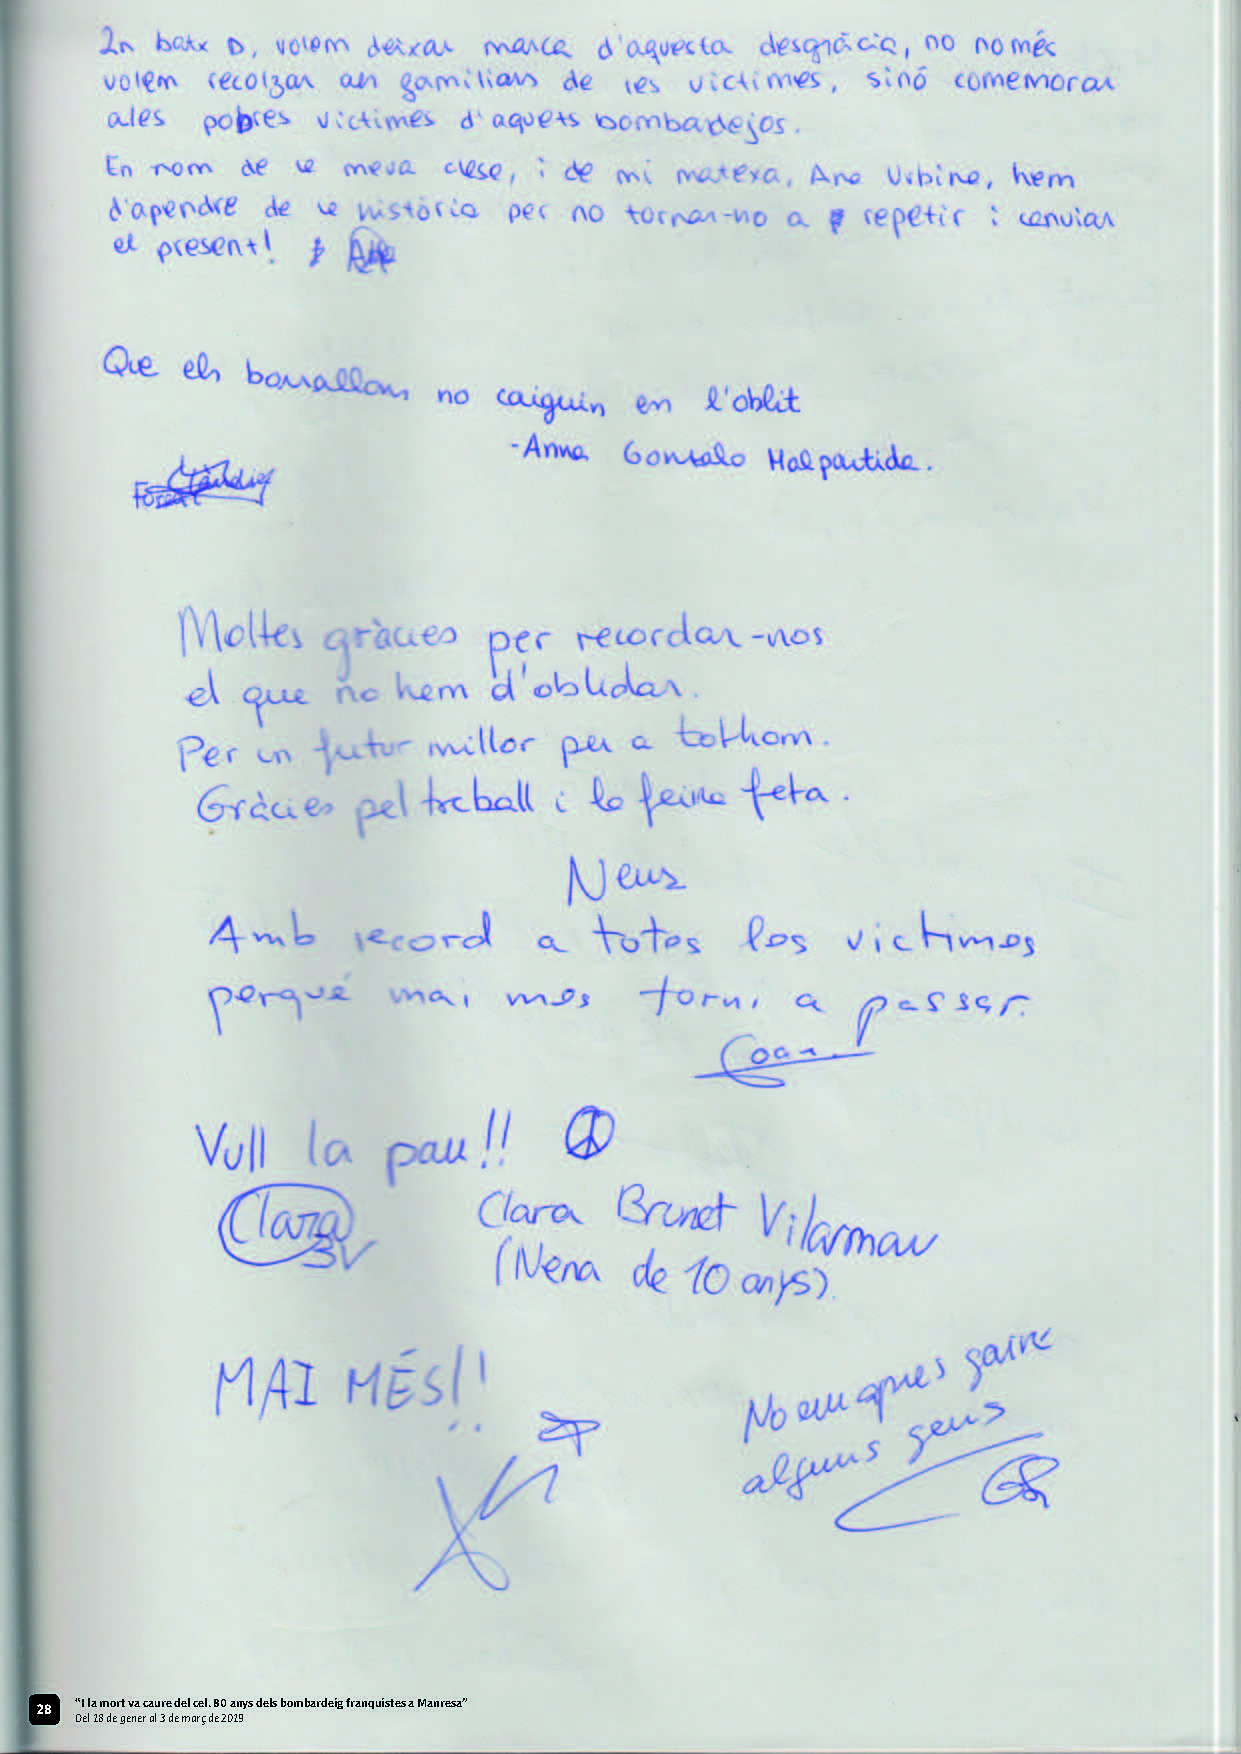 2n batx D, volem deixar marca d'aquesta desgràcia, no només
volem recolzar als familiars de les víctimes, sinó comemorar
ales pobres víctimes d'aquets bombardejos.
En nom de la meva clase, i de mi matexa, Ana Urbina, hem
d'apendre de la història per no tornar-no a repetir i canviar
el present!
Que els borrallons no caiguin en l'oblit
-Anna Gonzalo Malpartida.
Clàudia
Moltes gràcies per recordar-nos
el que no hem d'oblidar.
Per un futur millor per a tothom.
Gràcies pel treball i la feina feta.
Neus
Amb record a totes les victimes
perqué mai mes torni a passar.
Joan
Vull la pau!!
Clara BV
Clara Brunet Vilarmau
(Nena de 10 anys).
MAI MÉS!!
No em apres gaire
alguns gens
28
"I la mort va caure del cel. 80 anys dels bombardeig franquistes a Manresa"
Del 18 de gener al 3 de març de 2019